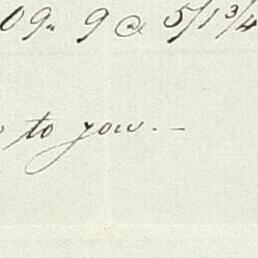 09. 9 @ 5/1 3/4
to you. –